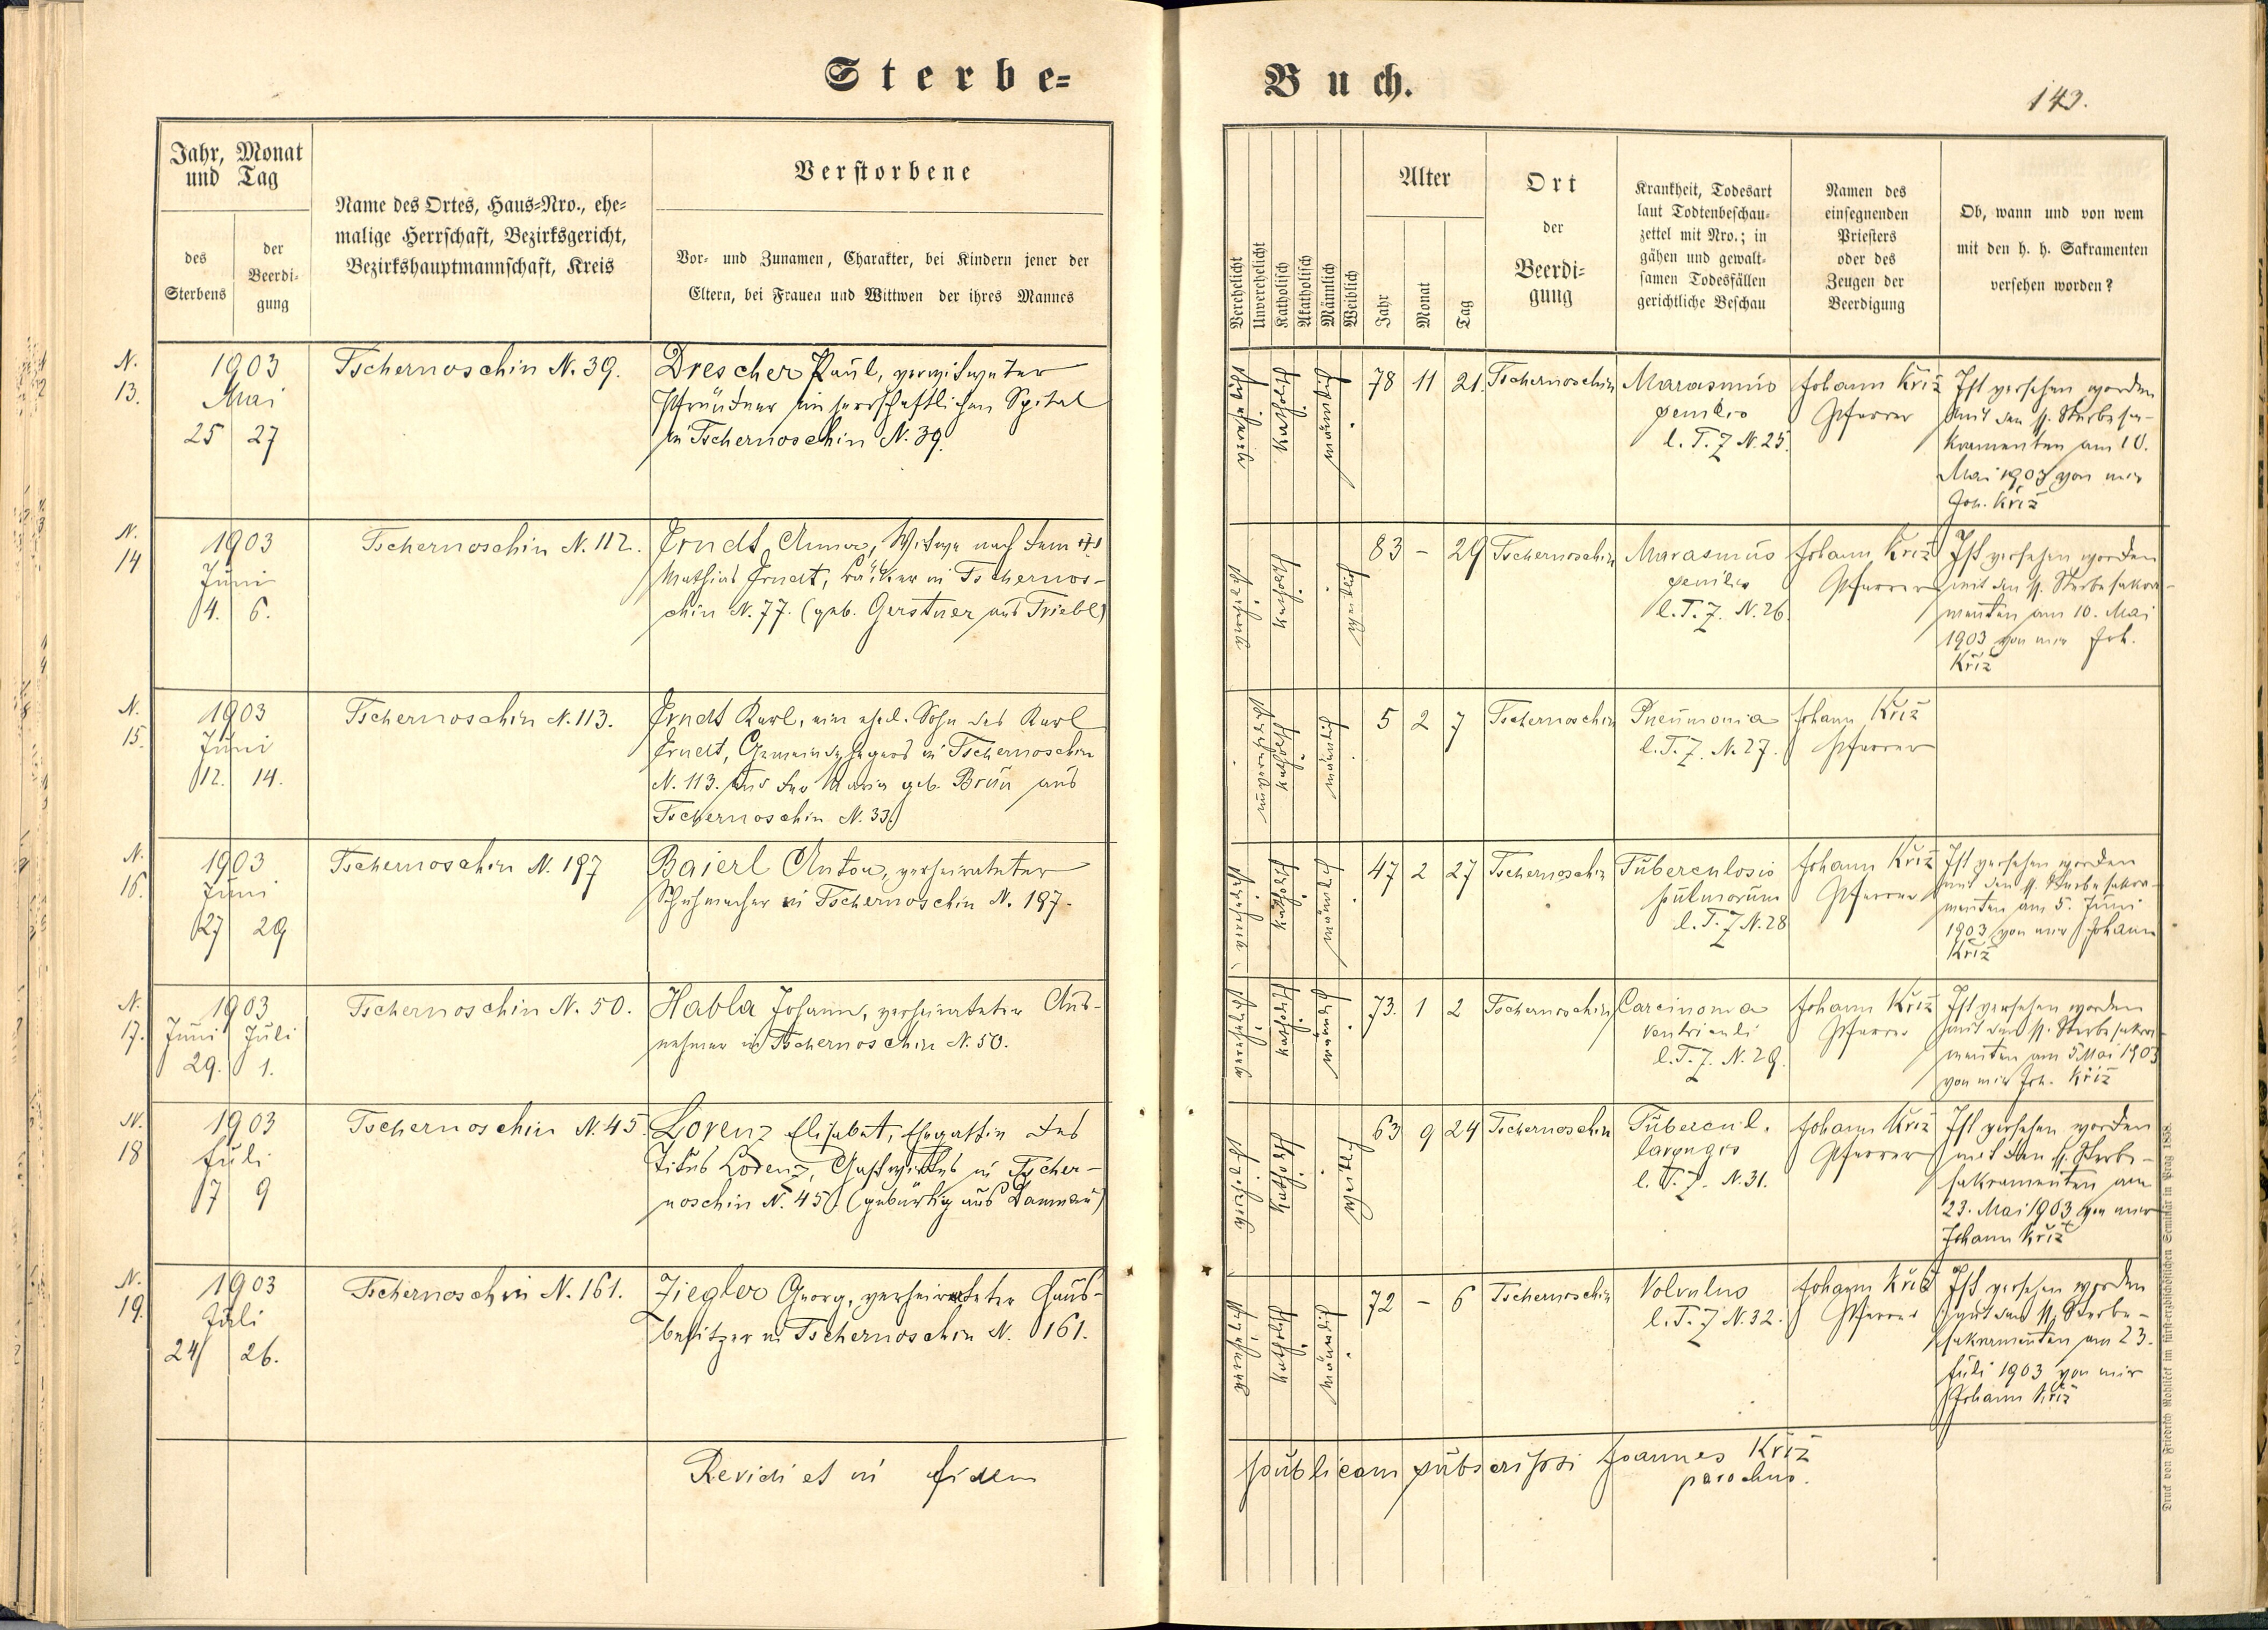 Sterbe=
Buch.
143.
Jahr, Monat
und Tag
des
Sterbens
der
Beerdi-
gung
Name des Ortes, Haus=Nro., ehe=
malige Herrschaft, Bezirksgericht,
Bezirkshauptmannschaft, Kreis
Verstorbene
Vor- und Zunamen, Charakter, bei Kindern jener der
Eltern, bei Frauen und Wittwen der ihres Mannes
Verehelicht
Unverehelicht
Katholisch
Akatholisch
Männlich
Weiblich
Alter
Jahr
Monat
Tag
Ort
der
Beerdi=
gung
Krankheit, Todesart
laut Todtenbeschau-
zettel mit Nro.; in
gähen und gewalt-
samen Todesfällen
gerichtliche Beschau
Namen des
einsegnenden
Priesters
oder des
Zeugen der
Beerdigung
Ob, wann und von wem
mit den h. h. Sakramenten
versehen worden?
N.
13.
1903
Mai
25 27
Tschernoschin N. 39.
Drescher Paul, verwitweter
Pfründner im herrschaftlichen Spital
in Tschernoschin N. 39.
verehelicht
Katholisch
männlich
78 11 21.
Tschernoschin
Marasmus
senilis
l. T. Z N. 25.
Johann Kříž
Pfarrer
Ist versehen worden
mit den hl. Sterbesa-
kramenten am 10.
Mai 1903 von mir
Joh. Kříž
N.
14
1903
Juni
4. 6.
Tschernoschin N. 112.
Erndt Anna, Witwe nach dem
Mathias Erndt, Bäcker in Tschernos-
chin N. 77. (geb. Gerstner aus Triebl)
verehelicht
Katholisch
weiblich
83 - 29
Tschernoschin
Marasmus
senilis
l. T. Z. N. 26.
Johann Kříž
Pfarrer
Ist versehen worden
mit den hl. Sterbesakra-
menten am 10. Mai
1903 von mir Joh.
Kříž
N.
15.
1903
Juni
12. 14.
Tschernoschin N. 113.
Erndt Karl, ein ehel. Sohn des Karl
Erndt, Gemeindehegers in Tschernoschin
N. 113. und der Maria geb. Bräu aus
Tschernoschin N. 33.)
unverehelicht
Katholisch
männlich
5 2 7
Tschernoschin
Pneumonia
l. T. Z. N. 27.
Johann Kříž
Pfarrer
N.
16.
1903
Juni
27 29
Tschernoschin N. 197
Baierl Anton, verheirateter
Schuhmacher in Tschernoschin N. 197.
verehelicht
Katholisch
männlich
47 2 27
Tschernoschin
Tuberculosis
pulmorum
l. T. Z N. 28
Johann Kříž
Pfarrer
Ist versehen worden
mit den hl. Sterbesakra-
menten am 5. Juni
1903 von mir Johann
Kříž
N.
17.
1903
Juni Juli
29. 1.
Tschernoschin N. 50.
Habla Johann, verheirateter Aus-
nehmer in Tschernoschin N. 50.
verehelicht
Katholisch
männlich
73. 1 2
Tschernoschin
Carcinoma
ventriculi
l. T. Z. N. 29.
Johann Kříž
Pfarrer
Ist versehen worden
mit den hl. Sterbesakra-
menten am 5 Mai 1903
von mir Joh. Kříž
N.
18
1903
Juli
7 9
Tschernoschin N. 45.
Lorenz Elisabet, Ehegattin des
Titus Lorenz, Gastwirtes in Tscher-
noschin N. 45. (gebürtig aus Damnau)
verehelicht
Katholisch
weiblich
63 9 24
Tschernoschin
Tubercul.
laryngis
l. T. Z. N. 31.
Johann Kříž
Pfarrer
Ist versehen worden
mit den hl. Sterbe-
sakramenten am
23. Mai 1903 von mir
Johann Kříž
N.
19.
1903
Juli
24 26.
Tschernoschin N. 161.
Ziegler Georg, verheirateter Haus-
besitzer in Tschernoschin N. 161.
verehelicht
Katholisch
männlich
72 - 6
Tschernoschin
Volvulus
l. T. Z N. 32.
Johann Kříž
Pfarrer
Ist versehen worden
mit den hl. Sterbe-
sakramenten am 23.
Juli 1903 von mir
Johann Kříž
Revidi et in fidem
publicam subscripsi Joannes Kříž
parochus.
Druck von Friedrich Rohliček im fürst-erzbischöflichen Seminär in Prag 1858.